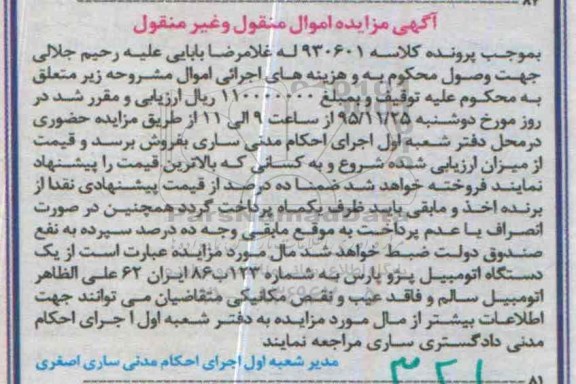 ۸۲
آگهی مزایده اموال منقول وغیر منقول
بموجب پرونده کلاسه ۹۳۰۶۰۱ له غلامرضا بابایی علیه رحیم جلالی
جهت وصول محکوم به و هزینه های اجرائی اموال مشروحه زیر متعلق
به محکوم علیه توقیف و بمبلغ ۱۱۰۰۰۰۰۰۰ ریال ارزیابی و مقرر شد در
روز مورخ دوشنبه ۹۵/۱۱/۲۵ از ساعت ۹ الی ۱۱ از طریق مزایده حضوری
درمحل دفتر شعبه اول اجرای احکام مدنی ساری بفروش برسد و قیمت
از میزان ارزیابی شده شروع و به کسانی که بالاترین قیمت را پیشنهاد
نمایند فروخته خواهد شد ضمنا ده درصد از قیمت پیشنهادی نقدا از
برنده اخذ و مابقی باید ظرف یکماه پرداخت گردد همچنین در صورت
انصراف یا عدم پرداخت به موقع مابقی وجه ده درصد سپرده به نفع
صندوق دولت ضبط خواهد شد مال مورد مزایده عبارت است از یک
دستگاه اتومبیل پژو پارس به شماره ۱۲۳ص۸۶ ایران ۶۲ علی الظاهر
اتومبیل سالم و فاقد عیب و نقص مکانیکی متقاضیان می توانند جهت
اطلاعات بیشتر از مال مورد مزایده به دفتر شعبه اول ا جرای احکام
مدنی دادگستری ساری مراجعه نمایند
مدیر شعبه اول اجرای احکام مدنی ساری اصغری
۸۱
ParsNamadData